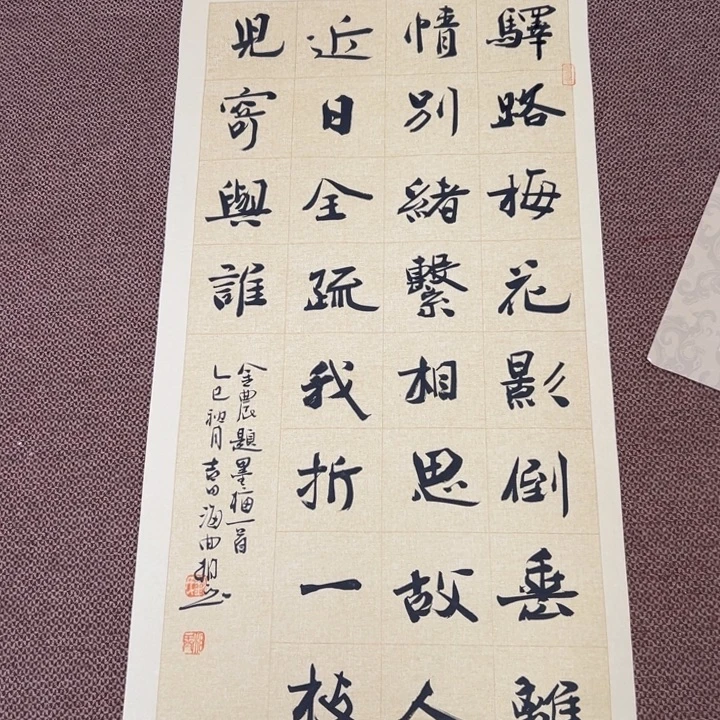 驛路梅花影倒垂離
情別緒繫相思故人
近日全疏我折一枝
見寄與誰
金農題墨梅一首
乙巳